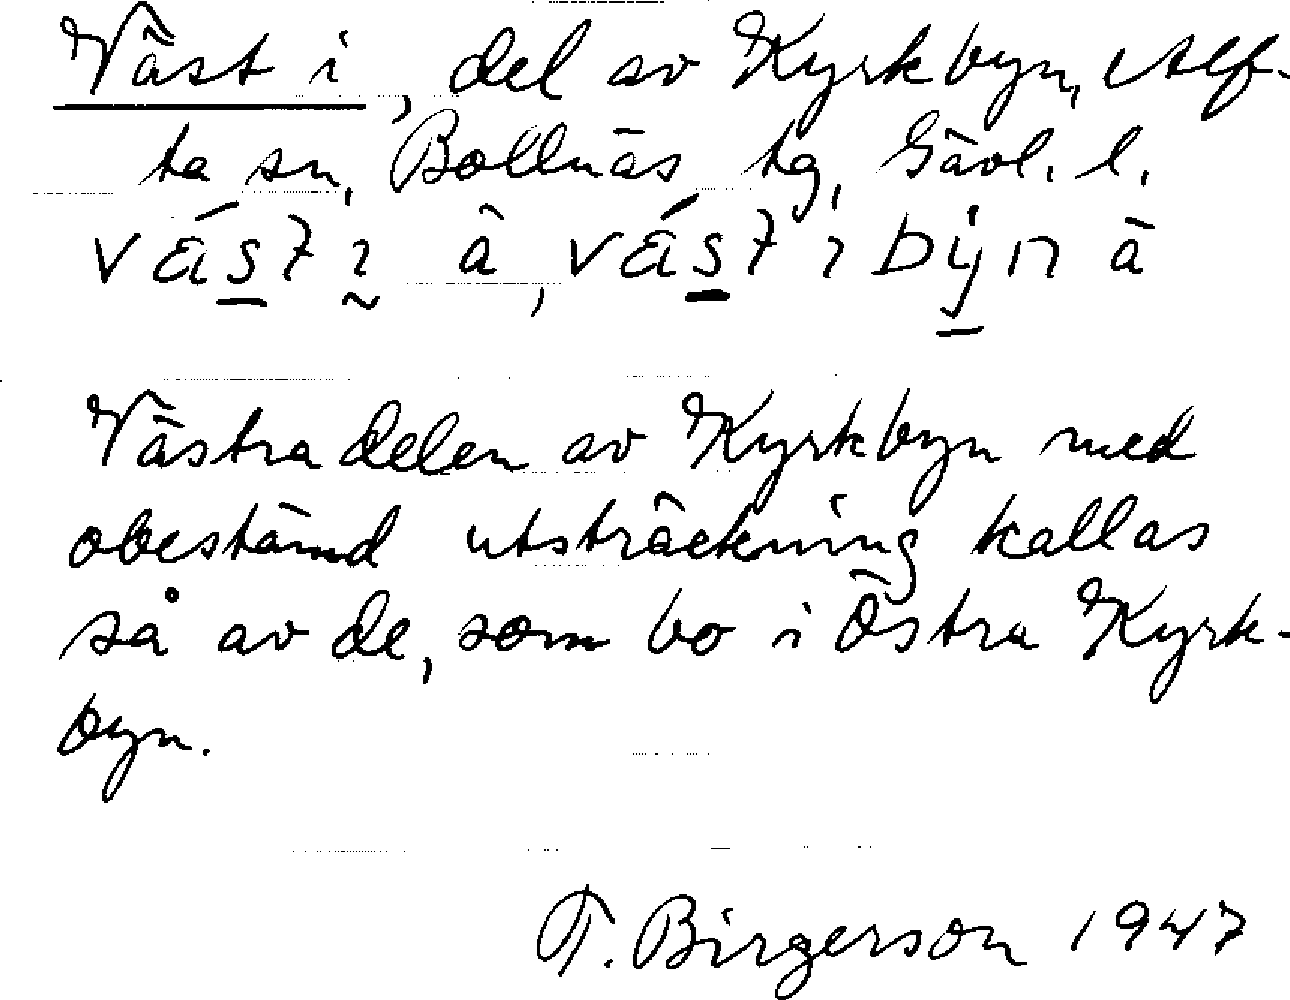 Väst i, del av Kyrkbyn, Alf-
ta sn, Bollnäs tg, Gävl. l.
Västra delen av Kyrkbyn med
obestämd utsträckning kallas
så av de, som bo i Östra Kyrk-
byn.
T. Birgerson 1947